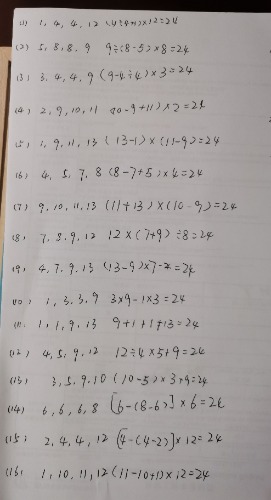 (1) 1, 4, 4, 12 (4÷4+1)×12=24
(2) 5, 8, 8, 9 9÷(8-5)×8=24
(3) 3, 4, 4, 9 (9-4÷4)×3=24
(4) 2, 9, 10, 11 (10-9+11)×2=24
(5) 1, 9, 11, 13 (13-1)×(11-9)=24
(6) 4, 5, 7, 8 (8-7+5)×4=24
(7) 9, 10, 11, 13 (11+13)×(10-9)=24
(8) 7, 8, 9, 12 12×(7+9)÷8=24
(9) 4, 7, 9, 13 (13-9)×7-4=24
(10) 1, 3, 3, 9 3×9-1×3=24
(11) 1, 1, 9, 13 9+1+1+13=24
(12) 4, 5, 9, 12 12÷4×5+9=24
(13) 3, 5, 9, 10 (10-5)×3+9=24
(14) 6, 6, 6, 8 [6-(8-6)]×6=24
(15) 2, 4, 4, 12 [4-(4-2)]×12=24
(16) 1, 10, 11, 12 (11-10+1)×12=24